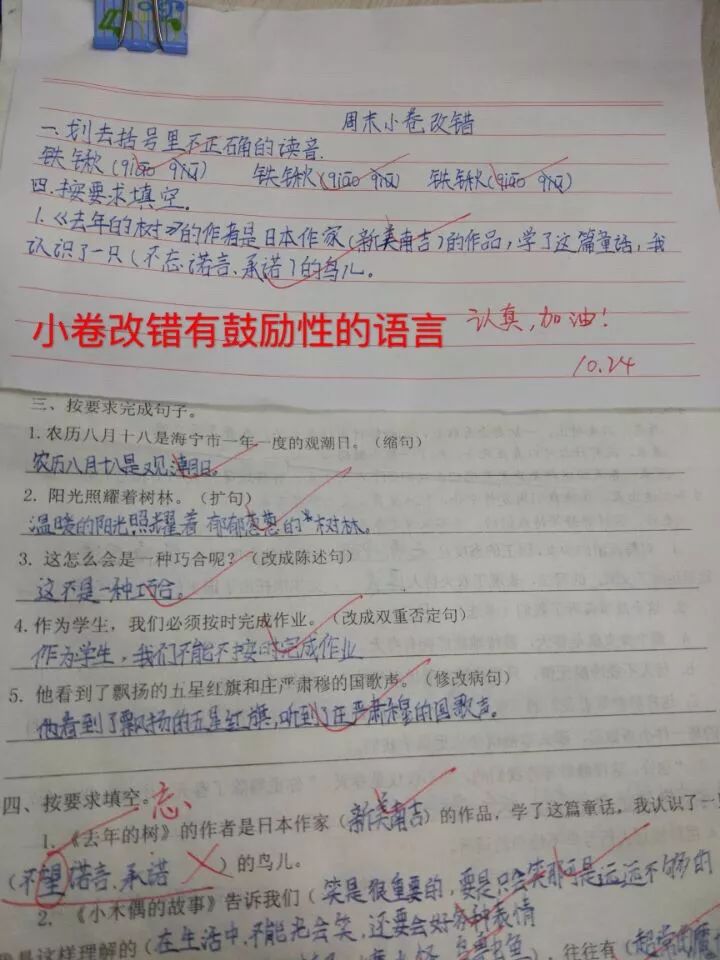 周末小卷改错
一.划去括号里不正确的读音.
铁锹(qiāo qiū) 铁锹(qiāo qiū) 铁锹(qiāo qiū)
四.按要求填空。
1.《去年的树》的作者是日本作家(新美南吉)的作品,学了这篇童话,我
认识了一只(不忘诺言、承诺)的鸟儿。
小卷改错有鼓励性的语言
认真,加油!
10.24
三、按要求完成句子。
1.农历八月十八是海宁市一年一度的观潮日。(缩句)
农历八月十八是观潮日。
2. 阳光照耀着树林。(扩句)
温暖的阳光照耀着郁郁葱葱的树林。
3. 这怎么会是一种巧合呢?(改成陈述句)
这不是一种巧合。
4.作为学生,我们必须按时完成作业。(改成双重否定句)
作为学生,我们不能不按时完成作业
5. 他看到了飘扬的五星红旗和庄严肃穆的国歌声。(修改病句)
他看到了飘扬的五星红旗,听到了庄严肃穆的国歌声。
四、按要求填空。
忘
1.《去年的树》的作者是日本作家(新美南吉)的作品,学了这篇童话,我认识了一
(不望诺言、承诺)的鸟儿。
2. 《小木偶的故事》告诉我们(笑是很重要的,要是只会笑那可是远远不够的
是这样理解的(在生活中,不能光会笑,还要会好多种表情
往往有(超常的魔